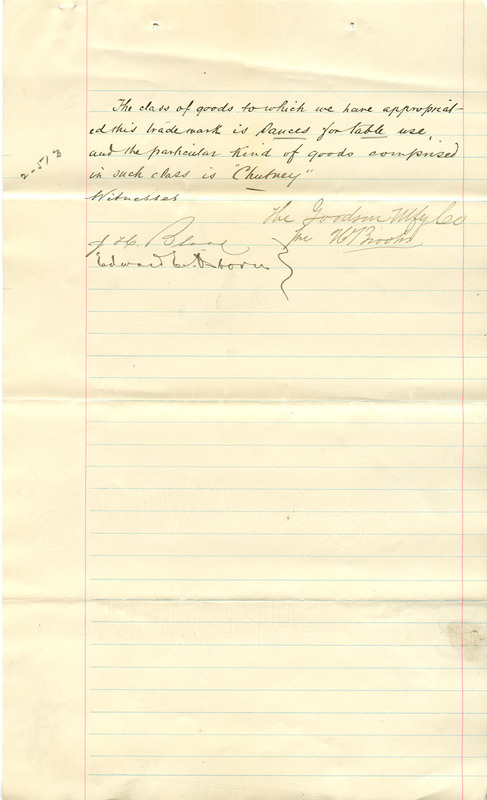 The class of goods to which we have appropriat-
ed this trade mark is Sauces for table use,
and the particular kind of goods comprised
in such class is "Chutney"
2-513
Witnesses
The Goodson Mfg Co
per W Brooks
J H. Blood
Edward E. Osborn